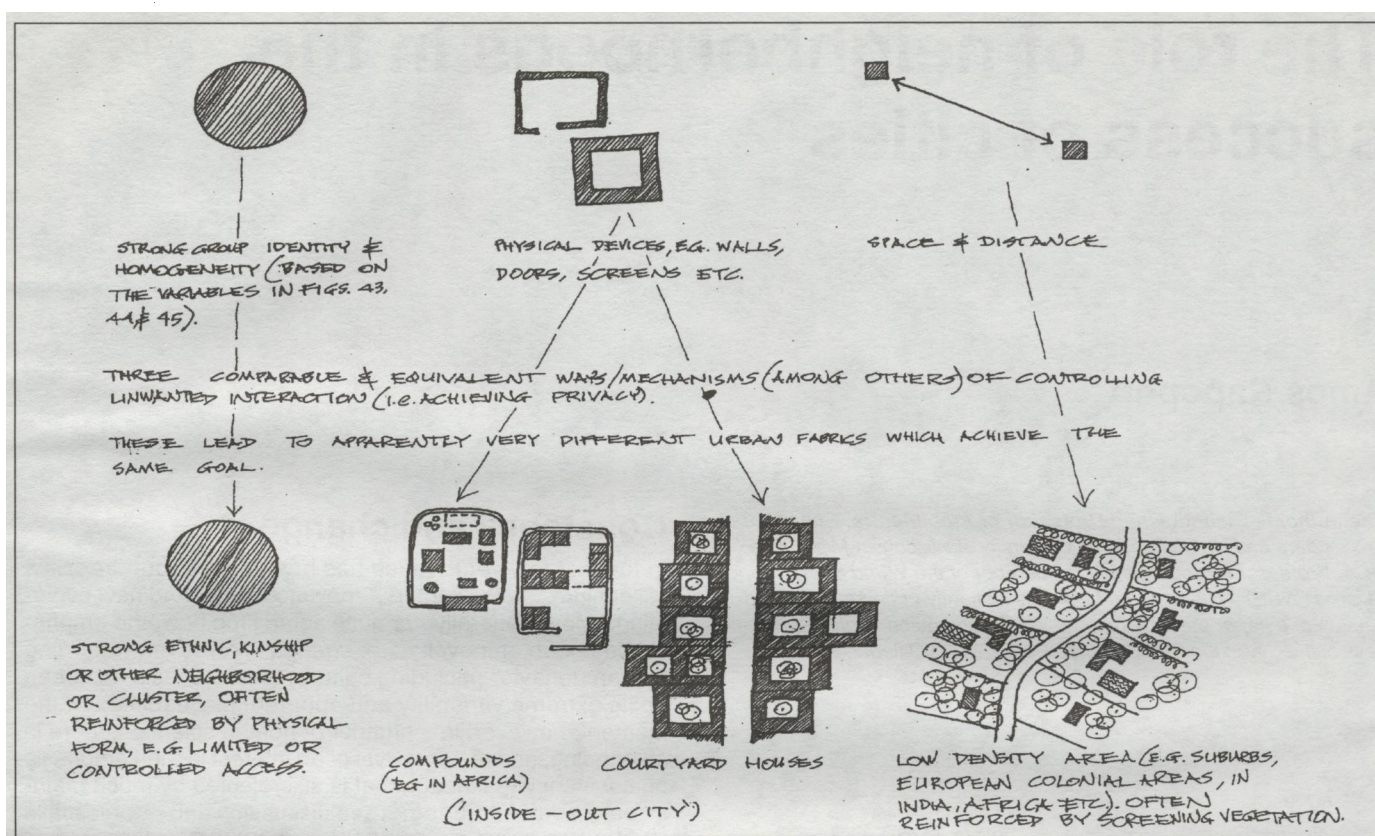 STRONG GROUP IDENTITY &
HOMOGENEITY (BASED ON
THE VARIABLES IN FIGS. 43,
44, & 45).
PHYSICAL DEVICES, EG. WALLS,
DOORS, SCREENS ETC.
SPACE & DISTANCE
THREE COMPARABLE & EQUIVALENT WAYS/MECHANISMS (AMONG OTHERS) OF CONTROLLING
UNWANTED INTERACTION (i.e. ACHIEVING PRIVACY).
THESE LEAD TO APPARENTLY VERY DIFFERENT URBAN FABRICS WHICH ACHIEVE THE
SAME GOAL.
STRONG ETHNIC, KINSHIP
OR OTHER NEIGHBORHOOD
OR CLUSTER, OFTEN
REINFORCED BY PHYSICAL
FORM, E.G. LIMITED OR
CONTROLLED ACCESS.
COMPOUNDS
(EG IN AFRICA)
COURTYARD HOUSES
('INSIDE-OUT CITY')
LOW DENSITY AREA (E.G. SUBURBS,
EUROPEAN COLONIAL AREAS, IN
INDIA, AFRICA ETC). OFTEN
REINFORCED BY SCREENING VEGETATION.